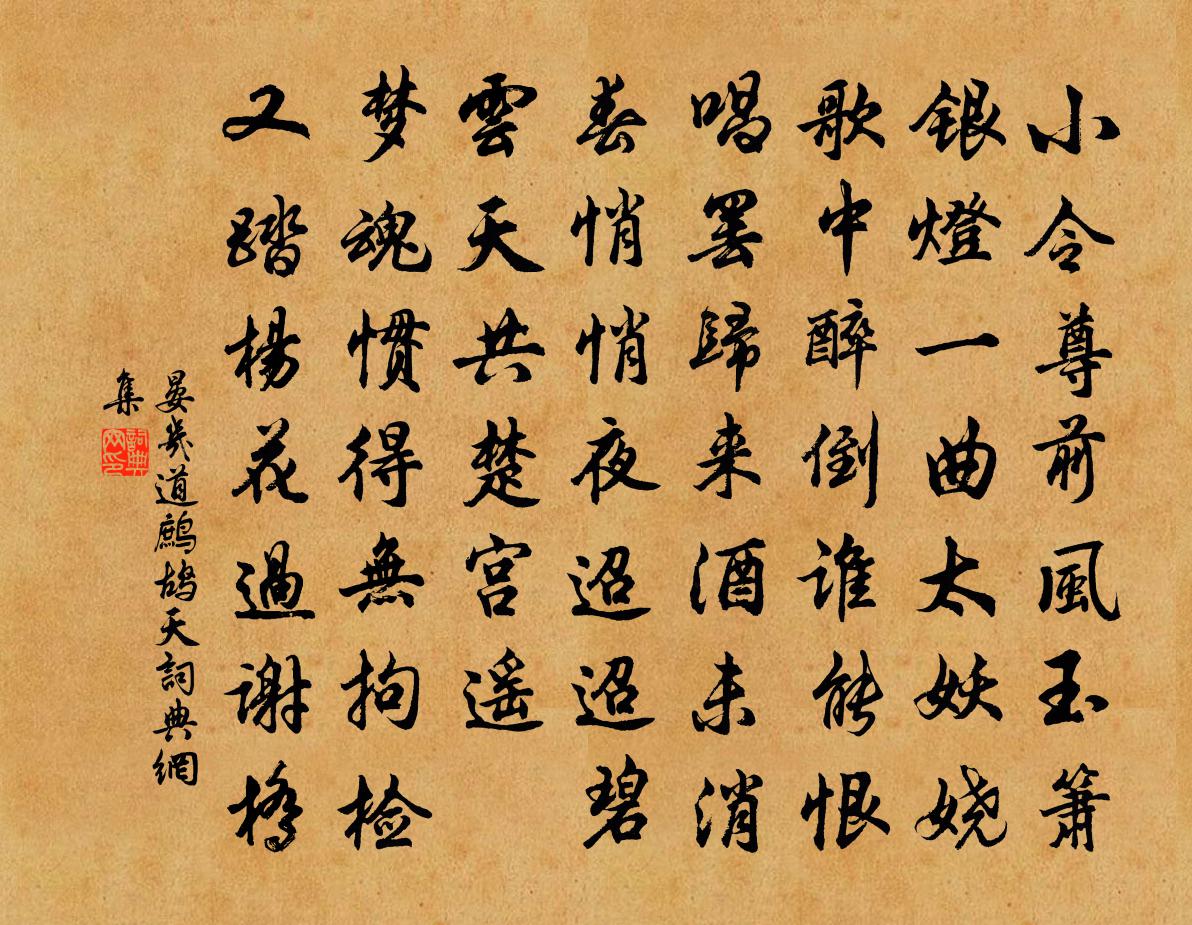 小令尊前風玉箫
銀燈一曲太妖娆
歌中醉倒谁能恨
唱罢歸来酒未消
春悄悄夜迢迢碧
雲天共楚宫遥
梦魂惯得無拘检
又踏楊花過谢橋
晏幾道鷓鴣天詞典網
集
詞典网印